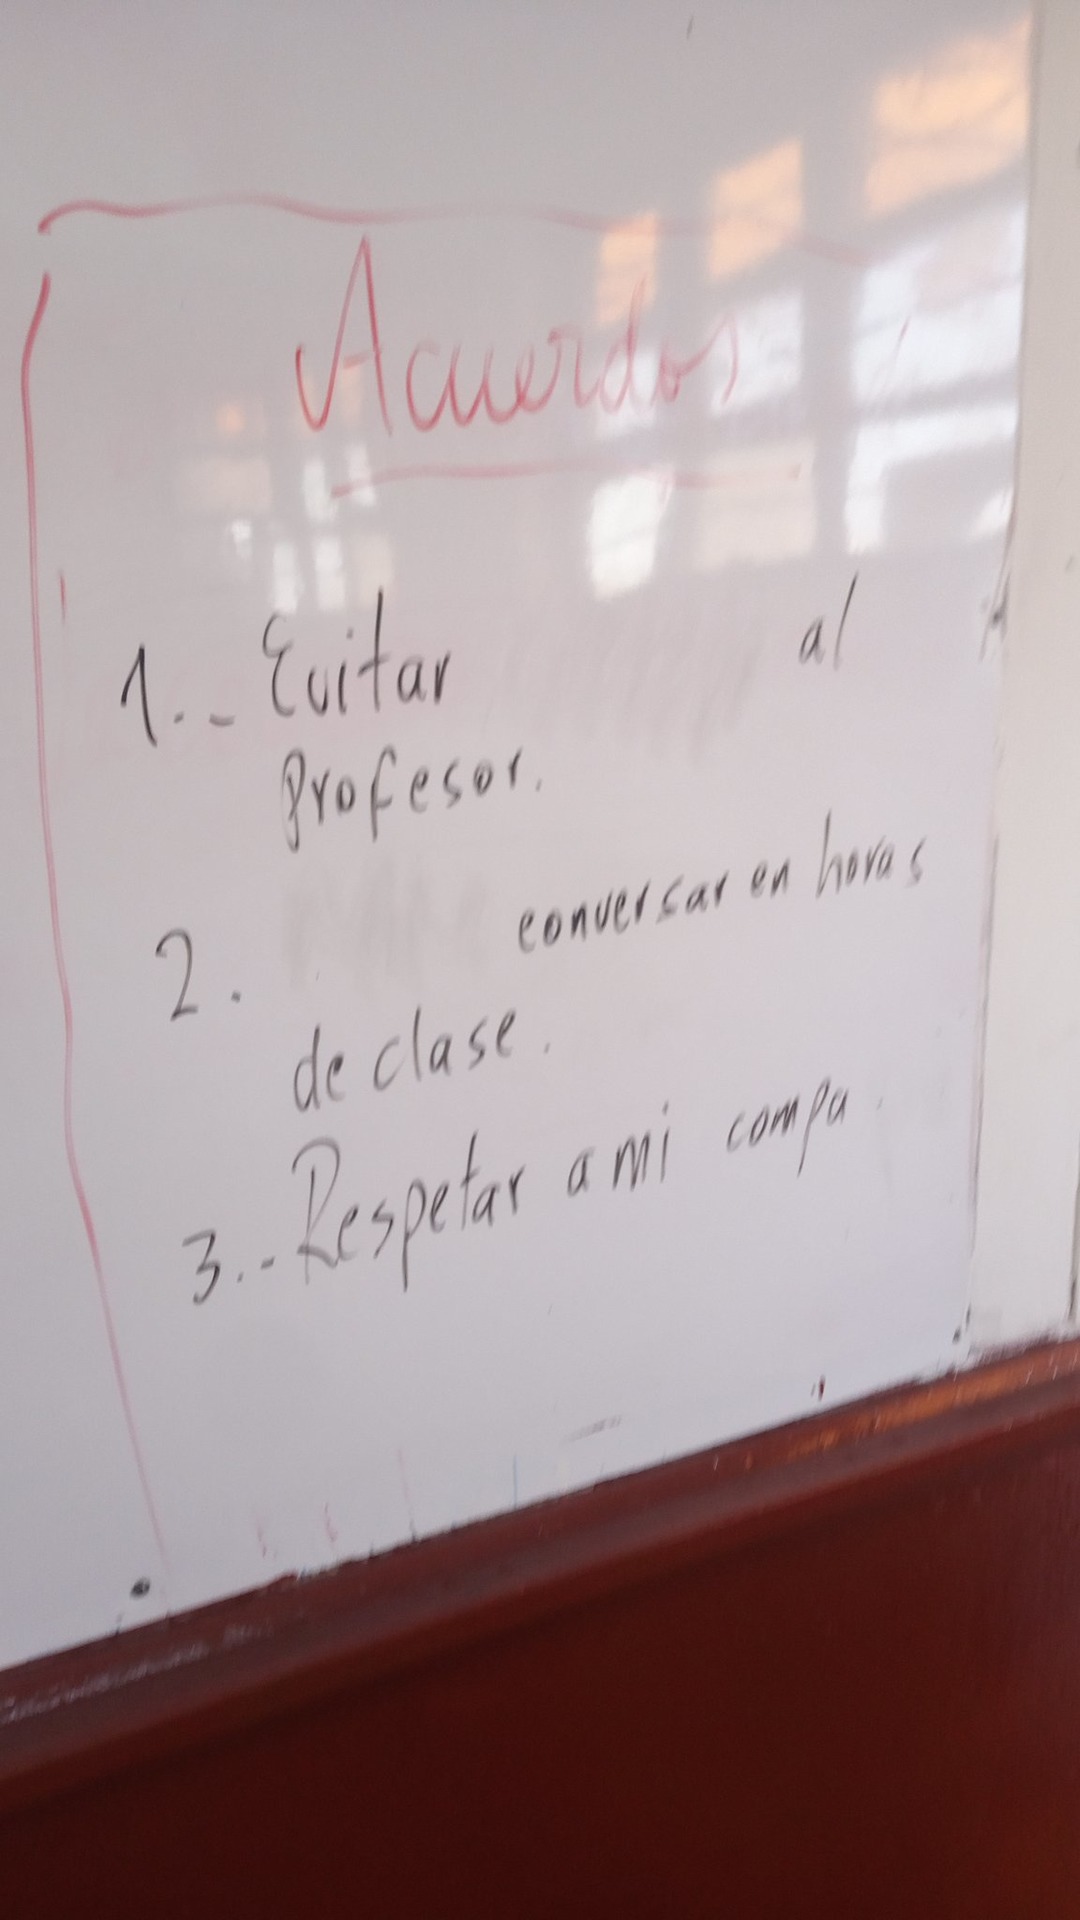 Acuerdos
1.- Evitar al
Profesor.
2. conversar en horas
de clase.
3.- Respetar a mi compa